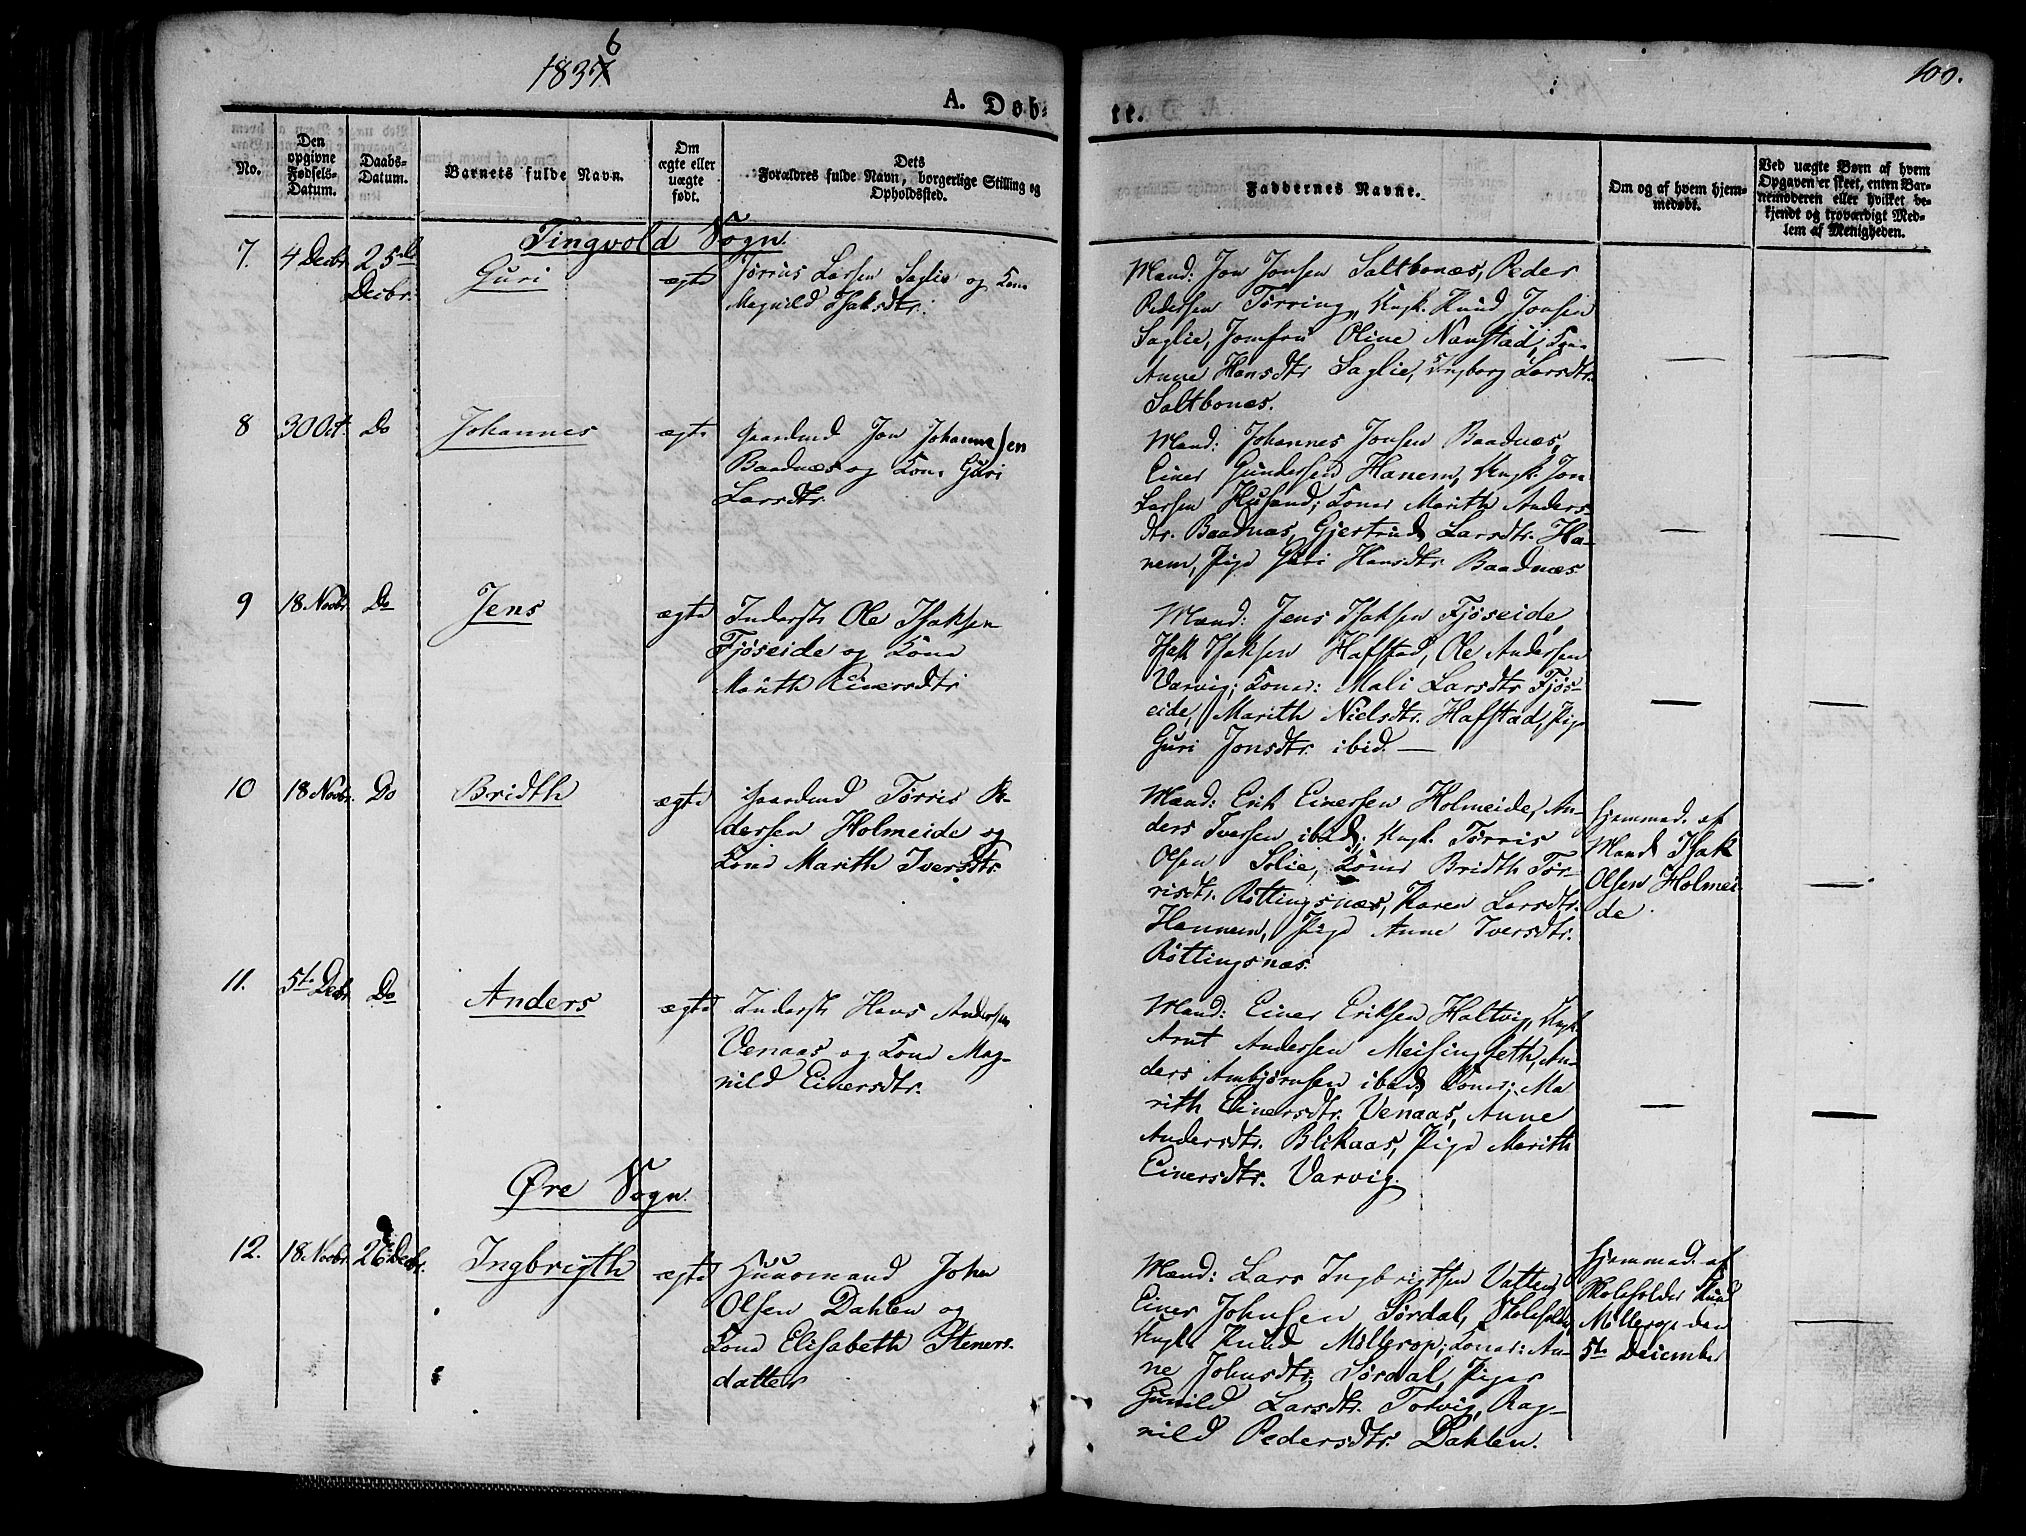 6
1837
A. Døb-
te.
100.
No.
Den opgivne Fødsels-Datum.
Daabs-Datum.
Barnets fulde Navn.
Om ægte eller uægte født.
Dets Forældres fulde Navn, borgerlige Stilling og Opholdssted.
Faddernes Navne.
Om og af hvem hjem-medøbt.
Ved uægte Børn af hvem Opgaven er skeet, enten Bar-nemoderen eller hvilket be-kjendt og troværdigt Med-lem af Menigheden.
Tingvold Sogn.
7. 4 Decbr 25de Decbr. Guri ægte
Larsen Saglie og Kone
Magnild Isaksdtr.
Mænd: Jon Jonsen Saltbonæs, Peder
Pedersen Tørring, Ungk. Knud Jonsen
Saglie, Jomfru Oline Nanstad, Kone
Anne Hansdtr Saglie, Ingborg Larsdtr.
Saltbonæs.
8 30 Oct. Do Johannes ægte
Gaardmd Jon Johannesen
Baadnæs og Kone Guri
Larsdtr.
Mænd: Johannes Jonsen Baadnæs,
Einer Gundersen Hanem, Ungk. Jon
Larsen Husund; Koner Marith Anders-
dtr. Baadnæs, Gjertrud Larsdtr. Ha-
nem, Pige Guri Hansdtr Baadnæs
9 18 Novbr. Do Jens ægte
Inderst Ole Isaksen
Fjøseide og Kone
Marith Einersdtr
Mænd: Jens Isaksen Fjøseide,
Isak Isaksen Hafstad, Ole Andersen
Varvig; Koner: Mali Larsdtr Fjøs-
eide, Marith Nielsdtr. Hafstad, Pige
Guri Jonsdtr. ibid. —
10 18 Novbr. Do Bridth ægte
Gaardmd Tørris Pe-
dersen Holmeide og
Kone Marith Iversdtr.
Mænd: Erik Einersen Holmeide, An-
ders Iversen ibid; Ungk. Tørris
Olsen Solie, Koner Bridth Tør-
risdtr. Røttingsnæs, Karen Larsdtr.
Hannem, Pige Anne Iversdtr.
Røttingsnæs.
Hjemmed. af
Mand Isak
Olsen Holmei-
de.
11. 5te Decbr. Do Anders ægte
Inderst Hans Andersen
Venaas og Kone Mag-
nild Einersdtr.
Mænd: Einer Eriksen Holtvig, Ungk.
Arnt Andersen Meisingseth, An-
ders Ambjørnsen ibid; Koner: Ma
rith Einersdtr. Venaas, Anne
Andersdtr. Blikaas, Pige Marith
Einersdtr. Varvig.
Øre Sogn.
12. 18. Novbr. 26 Decbr. Ingbrigth ægte
Huusmand John
Olsen Dahlen og
Kone Elisabeth Steners-
datter
Mænd: Lars Ingbrigtsen Vatten,
Einer Johnsen Sørdal, Skoleholder
Ungk. Knud Møllerop; Koner: An-
ne Johnsdtr. Sørdal, Piger
Gunild Larsdtr. Torvig, Rag-
nild Pedersdtr. Dahlen.
Hjemmed. af
Skoleholder Knud
Møllerop den
5te December